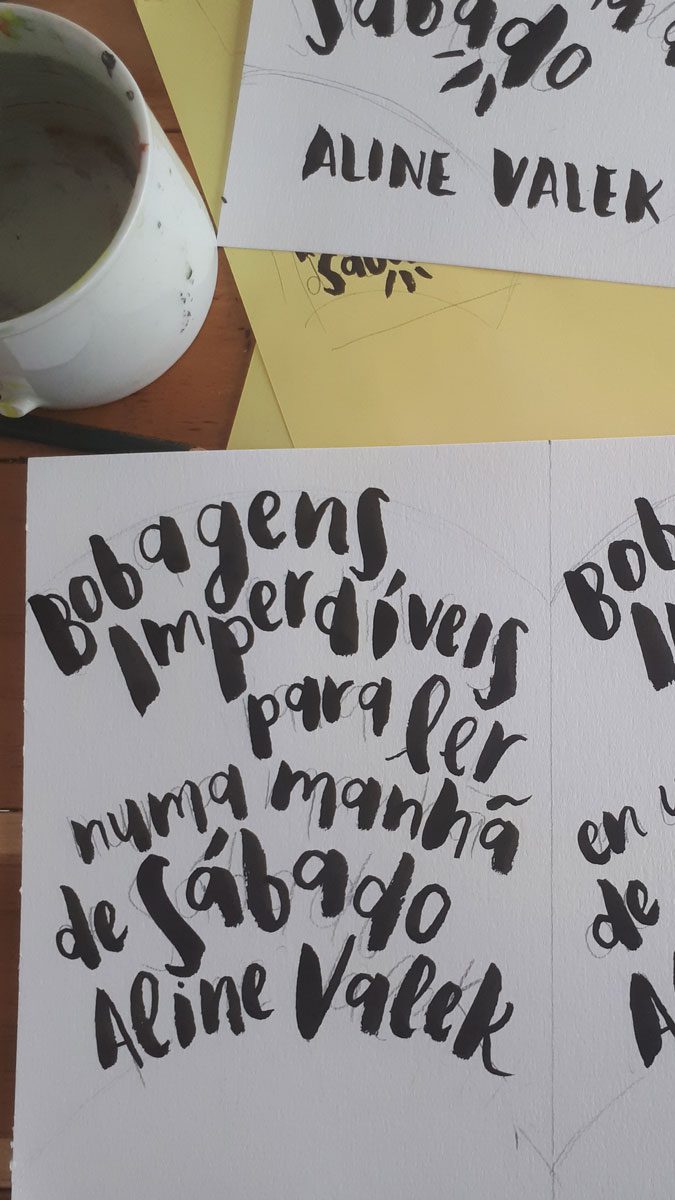 Sábado
ALINE VALEK
Bobagens
Imperdíveis
para ler
numa manhã
de Sábado
Aline Valek
Bob
en
de